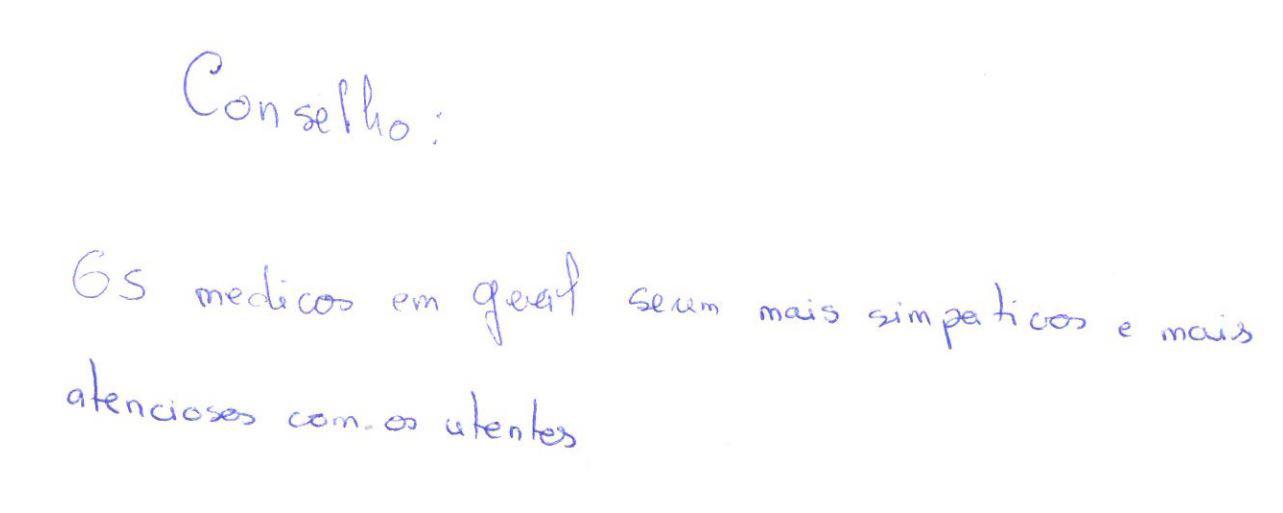 Conselho:
Os medicos em geral serem mais simpaticos e mais
atenciosos com os utentes